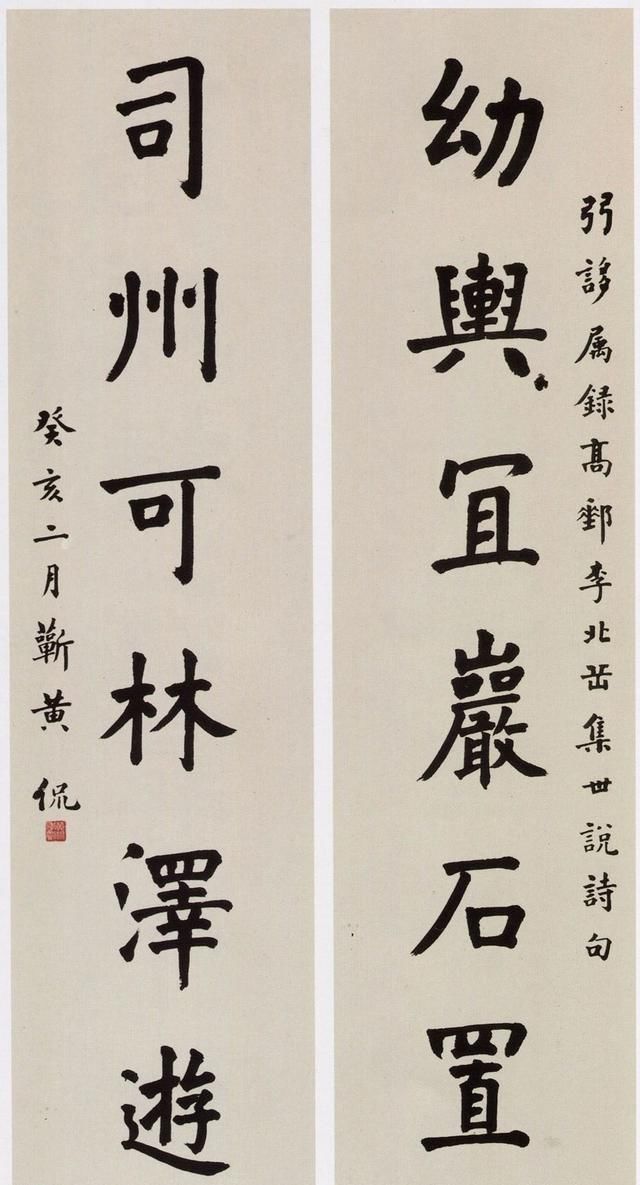 弜誃属録高郵李北岳集世說詩句
幼輿冝巖石置
司州可林澤遊
癸亥二月蘄黄侃